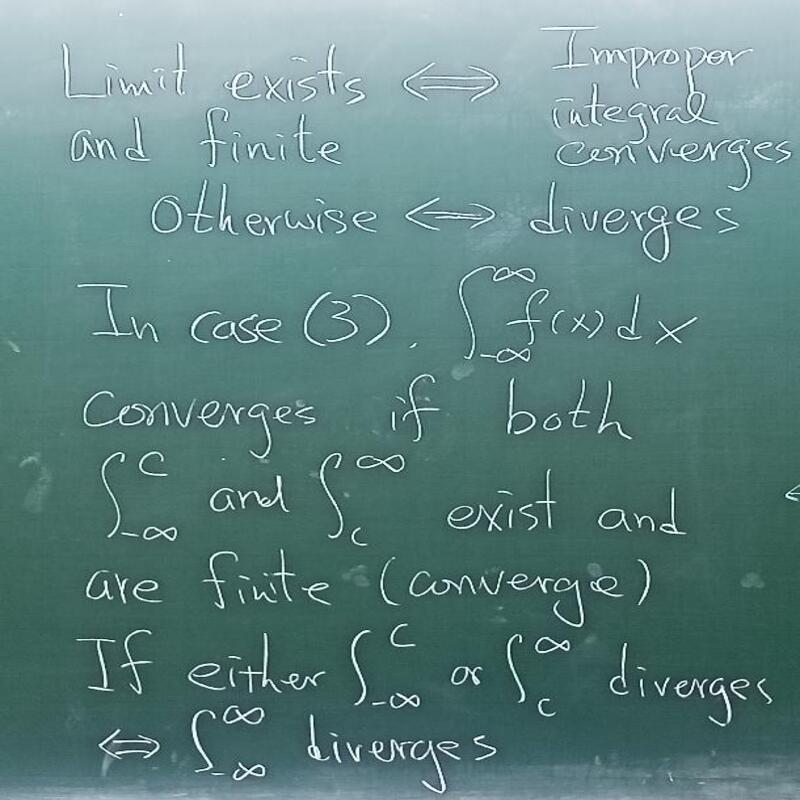 Limit exists ⇔ Impropor
and finite integral
converges
Otherwise ⇔ diverges
In case (3), ∫_{-∞}^{∞} f(x) dx
converges if both
∫_{-∞}^{c} and ∫_{c}^{∞} exist and
are finite (converge)
If either ∫_{-∞}^{c} or ∫_{c}^{∞} diverges
⇔ ∫_{-∞}^{∞} diverges